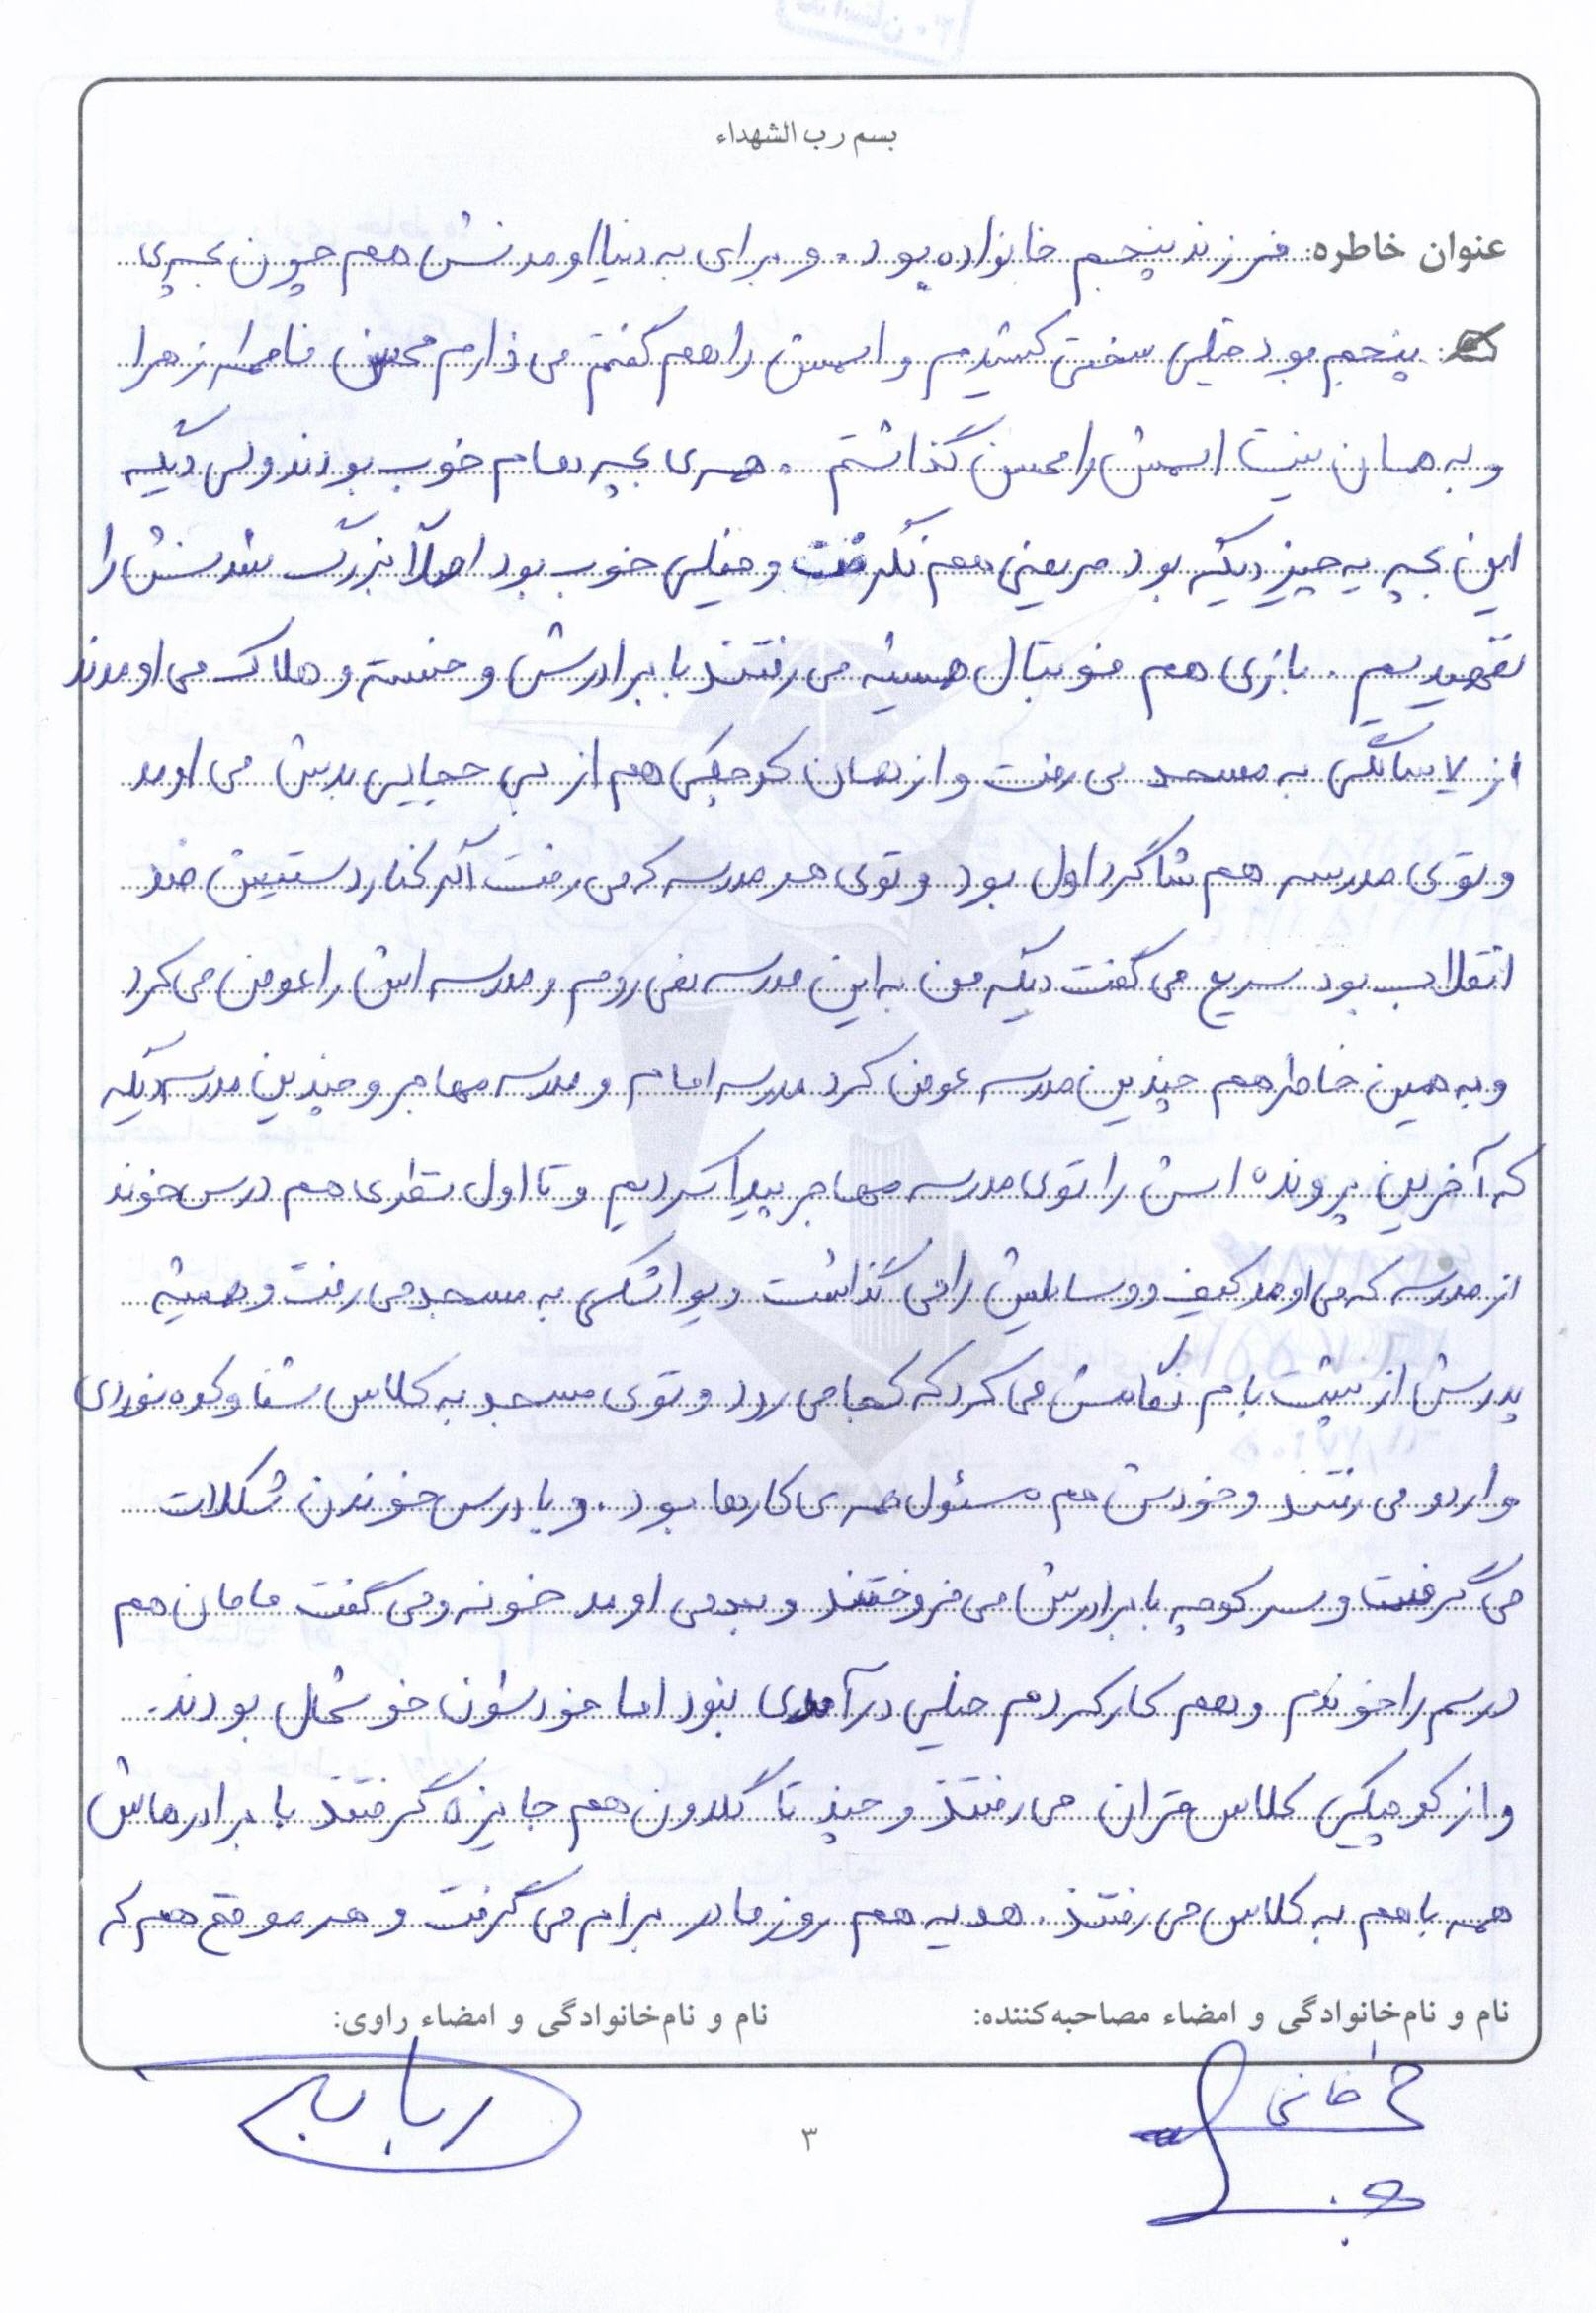 بسم رب الشهداء
عنوان خاطره: فرزند پنجم خانواده بود. و برای به دنیا اومدنش هم چون بچه‌ی
پنجم بود خیلی سختی کشیدم و اسمش را هم گفتم می ذارم محسن فاطمه زهرا
و به همان نیت اسمش را محسن گذاشتم. همه‌ی بچه هام خوب بودند ولی دیگه
این بچه یه چیز دیگه بود مریضی هم نگرفت و خیلی خوب بود اصلاً بزرگ شدنش را
نفهمیدیم. بازی هم فوتبال همیشه می رفتند با برادرش و خسته و هلاک می اومدند
از ۷ سالگی به مسجد می رفت و از همان کوچکی هم از بی حجابی بدش می اومد
و توی مدرسه هم شاگرد اول بود و توی هر مدرسه که می رفت اگر کنار دستیش ضد
انقلاب بود سریع می گفت دیگه من به این مدرسه نمی روم و مدرسه اش را عوض می کرد
و به همین خاطر هم چندین مدرسه عوض کرد مدرسه امام و مدرسه مهاجر و چندین مدرسه دیگه
که آخرین پرونده اش را توی مدرسه مهاجر پیدا کردیم و تا اول نظری هم درس خوند
از مدرسه که می اومد کیف و وسایلش را می گذاشت و یواشکی به مسجد می رفت و همیشه
پدرش از پشت بام نگاهش می کرد که کجا می رود و توی مسجد به کلاس شنا و کوه نوردی
و اردو می رفتند و خودش هم مسئول همه‌ی کارها بود. و با درس خوندن شکلات
می گرفت و سر کوچه با برادرش می فروختند و بعد می اومد خونه و می گفت مامان هم
درسم را خوندم و هم کار کردم خیلی درآمدی نبود اما خودشون خوشحال بودند.
و از کوچیکی کلاس قران می رفتند و چند تا گلدون هم جایزه گرفتند با برادرهاش
همه با هم به کلاس می رفتند. هدیه هم روز مادر برام می گرفت و هر موقع هم که
نام و نام‌خانوادگی و امضاء مصاحبه‌کننده:
نام و نام‌خانوادگی و امضاء راوی:
خانی
ربابه
۳